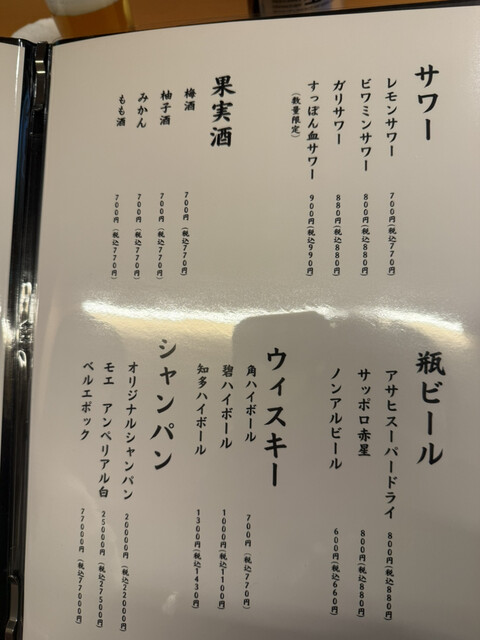 サワー
レモンサワー 700円(税込770円)
ビワミンサワー 800円(税込880円)
ガリサワー 880円(税込880円)
すっぽん血サワー 900円(税込990円)
(数量限定)
果実酒
梅酒 700円(税込770円)
柚子酒 700円(税込770円)
みかん 700円(税込770円)
もも酒 700円(税込770円)
瓶ビール
アサヒスーパードライ 800円(税込880円)
サッポロ赤星 800円(税込880円)
ノンアルビール 600円(税込660円)
ウィスキー
角ハイボール 700円(税込770円)
碧ハイボール 1000円(税込1100円)
知多ハイボール 1300円(税込1430円)
シャンパン
オリジナルシャンパン 20000円(税込22000円)
モエ アンペリアル白 25000円(税込27500円)
ベルエポック 77000円(税込77000円)